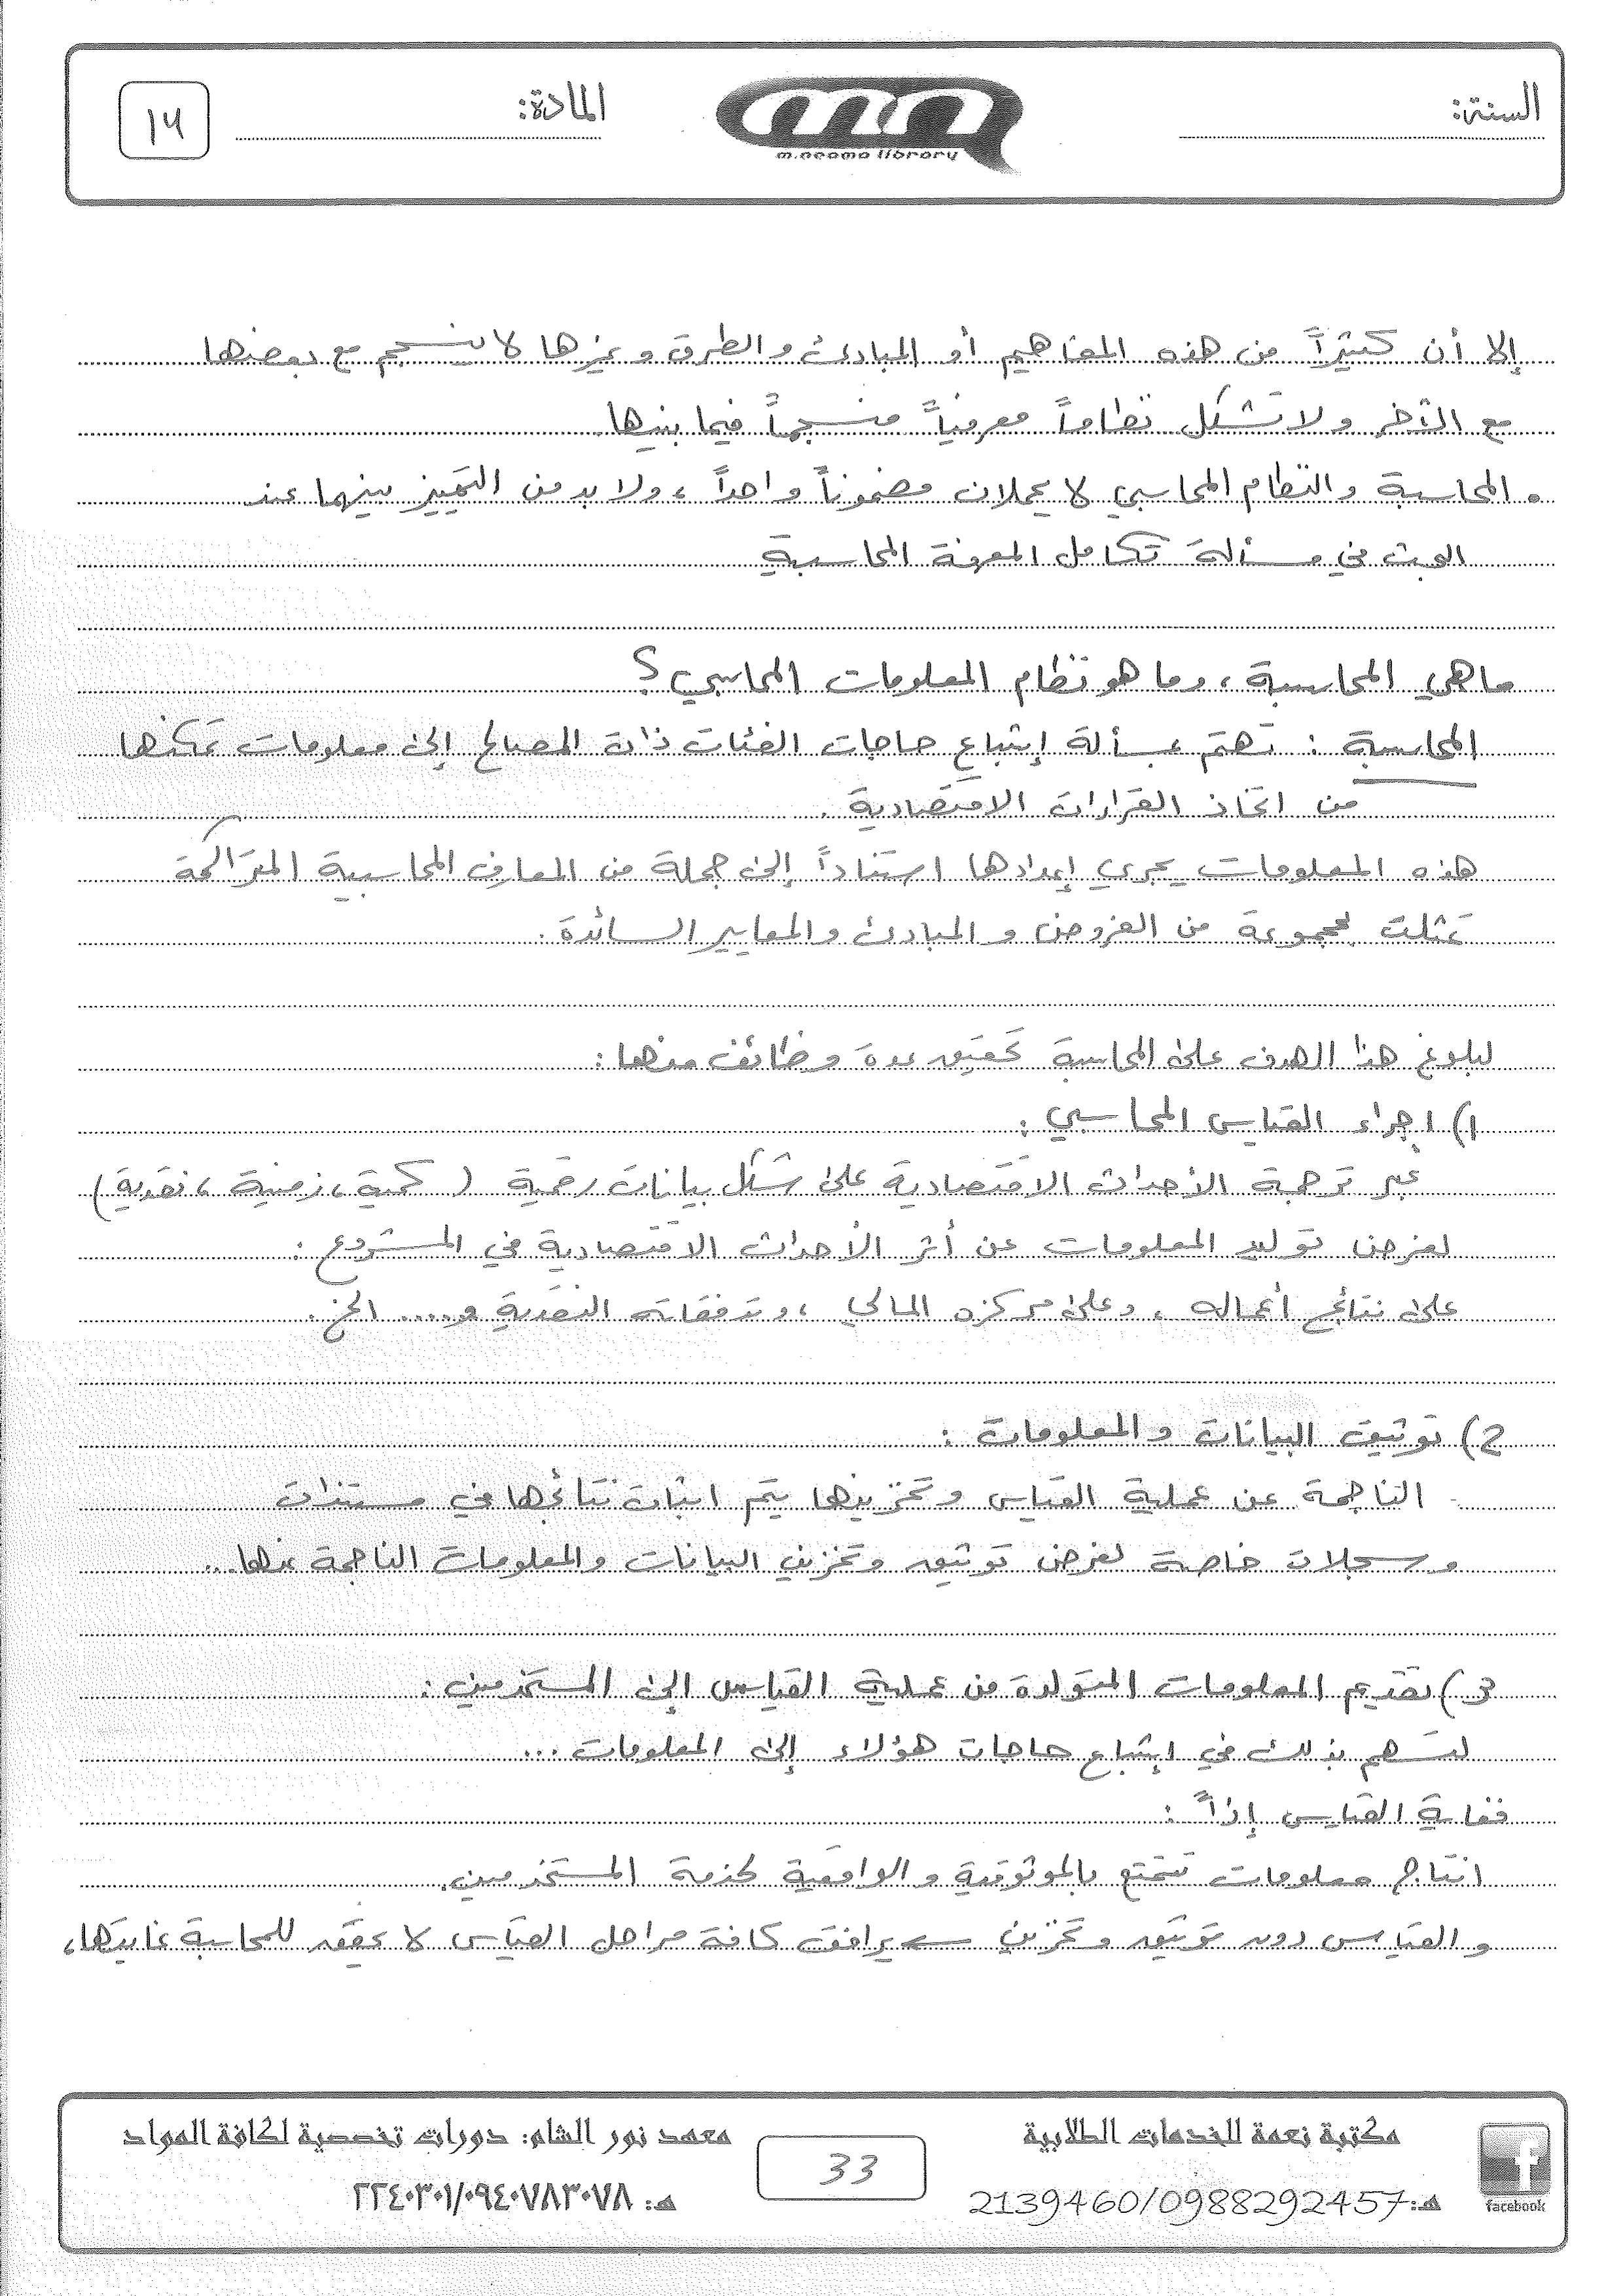 السنة:
m.neama library
المادة:
١٧
إلا أن كثيراً من هذه المفاهيم أو المبادئ والطرق وغيرها لا ينسجم مع بعضها
مع الآخر ولا تشكل نظاماً معرفياً منسجماً فيما بينها
• المحاسبة والنظام المحاسبي لا يحملان مضموناً واحداً ، ولا بد من التمييز بينهما عند
البحث في مسألة تكامل المعرفة المحاسبية
ماهي المحاسبة ، وما هو نظام المعلومات المحاسبي ؟
المحاسبة : تهتم بمسألة إشباع حاجات الفئات ذات المصالح إلى معلومات تمكنها
من اتخاذ القرارات الاقتصادية .
هذه المعلومات يجري إعدادها استناداً إلى جملة من المعارف المحاسبية المتراكمة
تمثلت بمجموعة من الفروض والمبادئ والمعايير السائدة .
لبلوغ هذا الهدف على المحاسبة تحقيق عدة وظائف منها :
1) إجراء القياس المحاسبي :
عبر ترجمة الأحداث الاقتصادية على شكل بيانات رقمية ( كمية ، زمنية ، نقدية )
لغرض توليد المعلومات عن أثر الأحداث الاقتصادية في المشروع :
على نتائج أعماله ، وعلى مركزه المالي ، وتدفقاته النقدية و .... الخ .
2) توثيق البيانات والمعلومات :
الناجمة عن عملية القياس وتخزينها يتم اثبات نتائجها في مستندات
وسجلات خاصة لغرض توثيق وتخزين البيانات والمعلومات الناجمة عنها ...
3) تقديم المعلومات المتولدة من عملية القياس إلى المستخدمين :
لتسهم بذلك في إشباع حاجات هؤلاء إلى المعلومات ...
فغاية القياس إذاً :
انتاج معلومات تتمتع بالموثوقية والواقعية لخدمة المستخدمين .
والقياس دون توثيق وتخزين يرافق كافة مراحل القياس لا يحقق للمحاسبة غايتها ،
مكتبة نعمة للخدمات الطلابية
هـ: 2139460/0988292457
facebook
33
معهد نور الشام: دورات تخصصية لكافة المواد
هـ: ٢٢٤٠٣٠١/٠٩٤٠٧٨٣٠٧٨